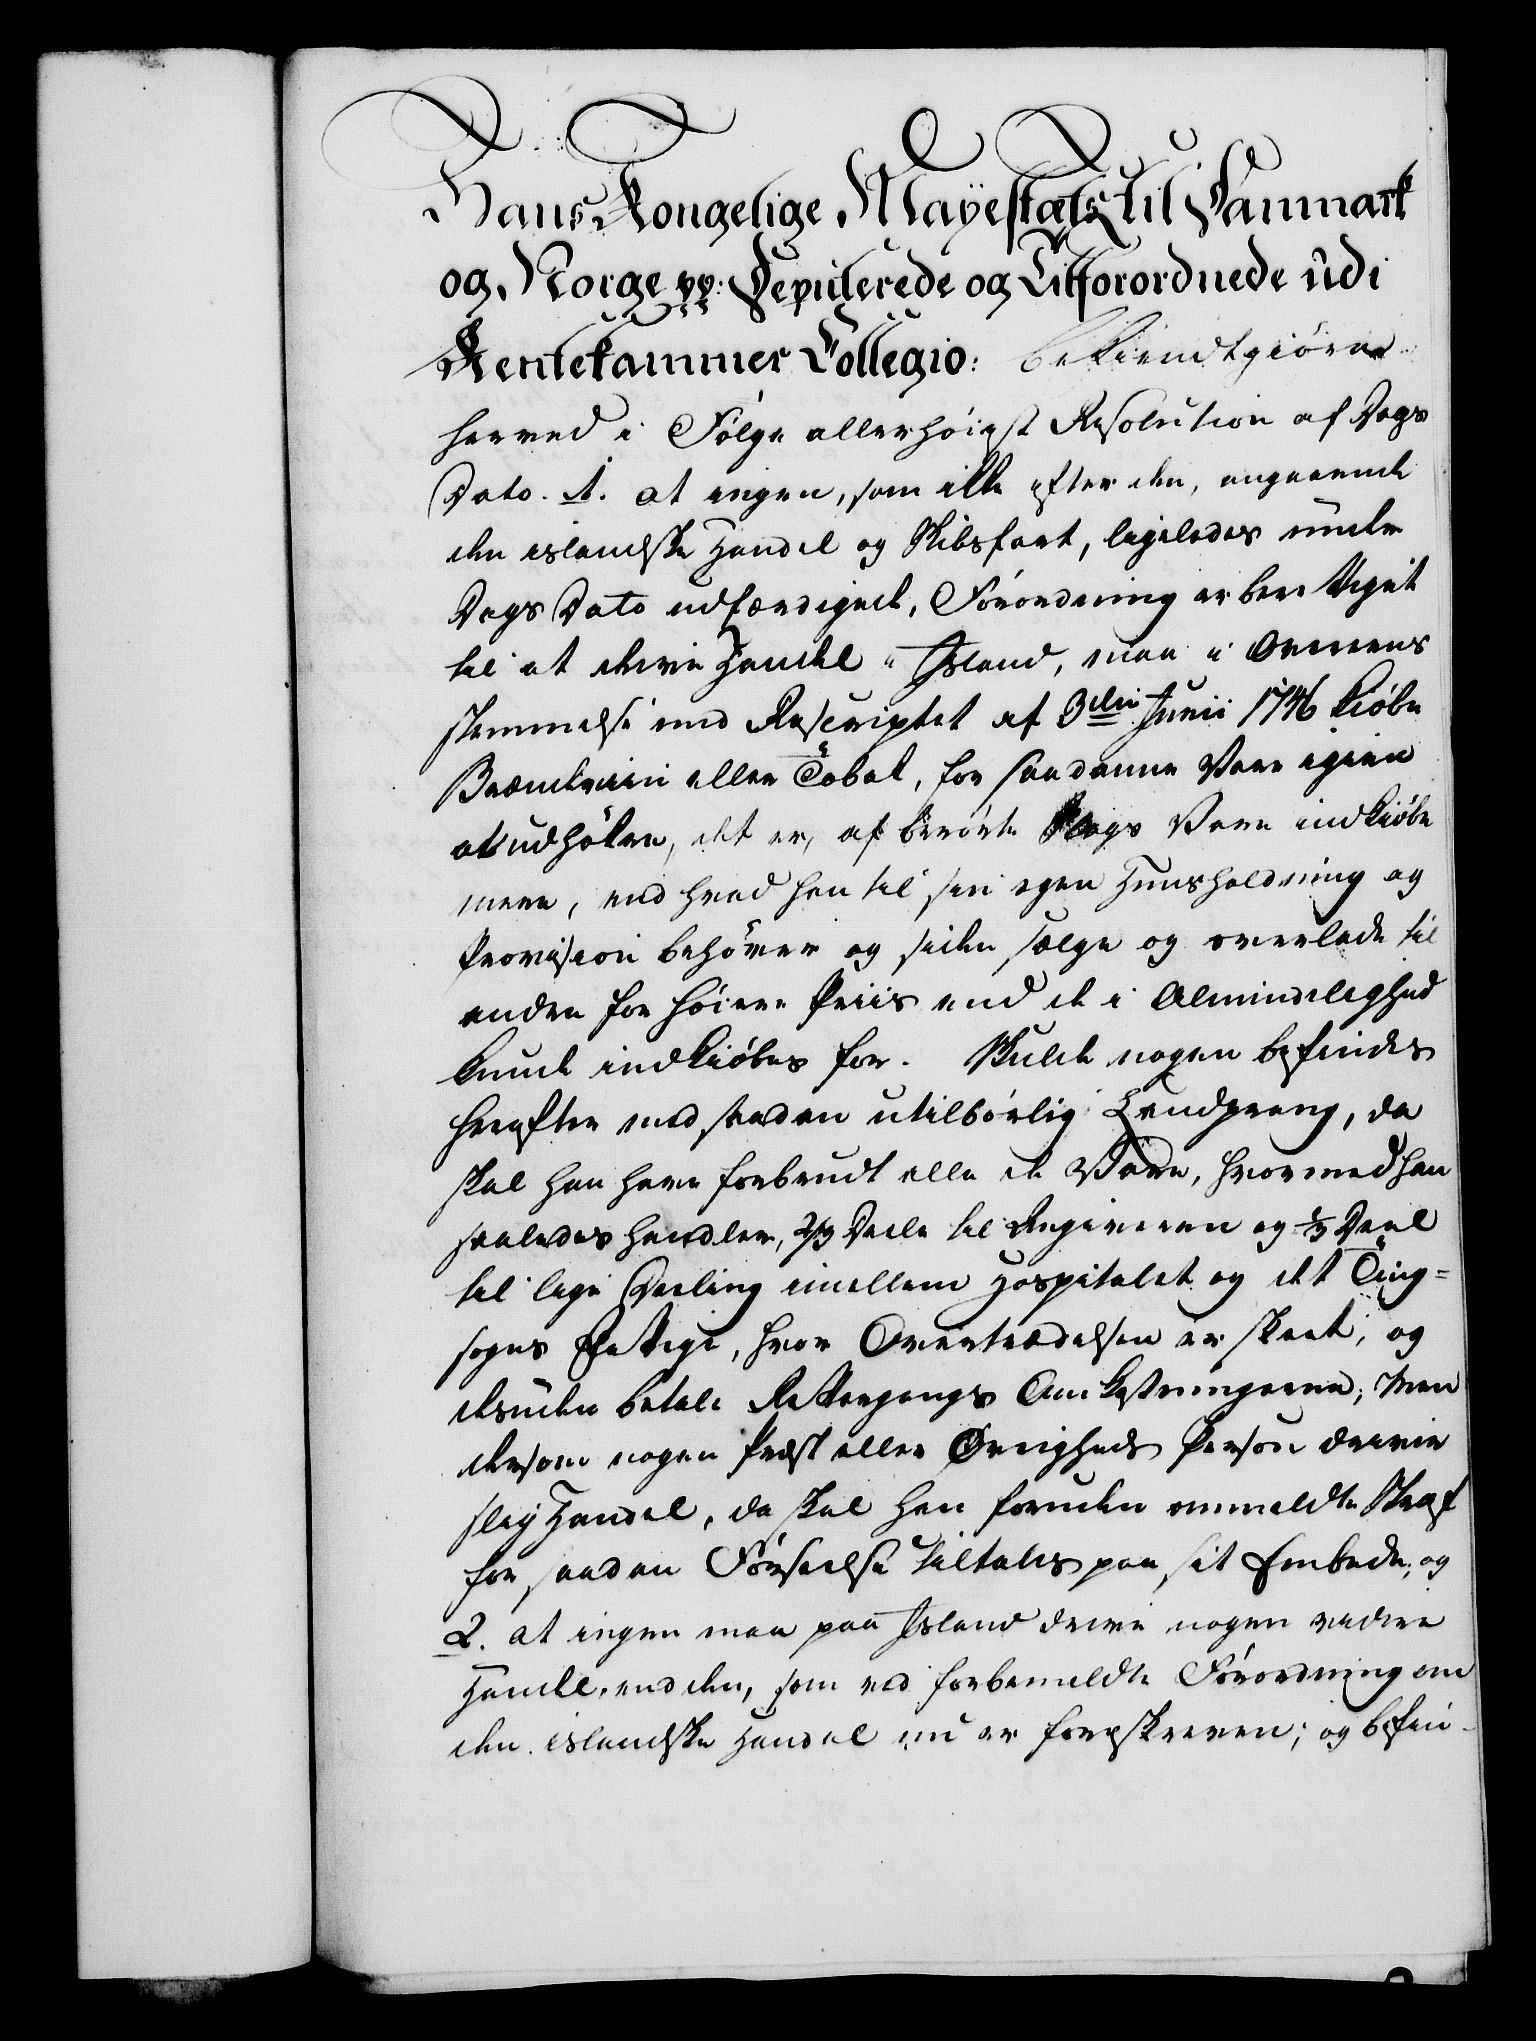 Hans Kongelige Mayestæts til Danmark
og Norge pp: Deputerede og Tilforordnede udi
Rentekammer Collegio: bekiendtgiøre
herved i Følge allerhøiest Resolution af Dags
Dato. 1. at ingen, som ikke efter den, angaaende
den islandske Handel og Skibsfart, ligeledes under
Dags Dato udfærdigede, Forordning er berettiget
til at drive Handel i Island, maa i Overeens
stemmelse med Rescriptet af 3die Junii 1746 kiøbe
Brændeviin eller Tobak, for saadanne Vare igien
at udhökre, det er, af berörte Slags Vare indkiøbe
mere, end hvad han til sin egen Huusholdning og
Provision behöver og siden sælge og overlade til
andre for höiere Priis end de i Almindelighed
kunde indkiøbes for. Skulde nogen befindes
herefter med saadan utilbörlig Landprang, da
skal han have forbrudt alle de Vare, hvormed han
saaledes handler, 2/3 Deele til Angiveren og 1/3 Deel
til lige Deeling imellem Hospitalet og det Ting=
sogns Fattige, hvor Overtrædelsen er skeet, og
desuden betale Rettergangs Omkostningerne; Men
dersom nogen Præst eller Øvrigheds Person driver
slig Handel, da skal han foruden ommeldte Straf
for saadan Forseelse tiltales paa sit Embede; og
2. at ingen maa paa Island drive nogen videre
Handel, end den, som ved forbemeldte Forordning om
den islandske Handel nu er foreskreven; og befin-